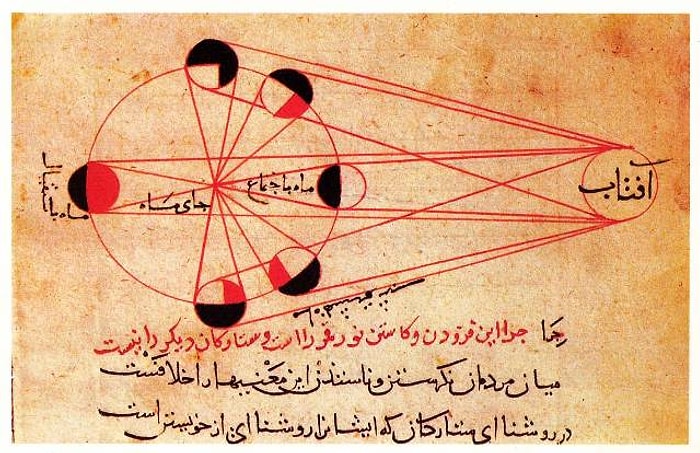 آفتاب
ماه باجتماع
جای ماه
ماه باستقبال
جرا این فزودن و کاستن نور قمر را است و ستارکان دیکر را نیست
میان مردمان نکرستن این معنیها را خلافست
در روشنای ستارکان که ایشانرا روشنای از خویشتن است